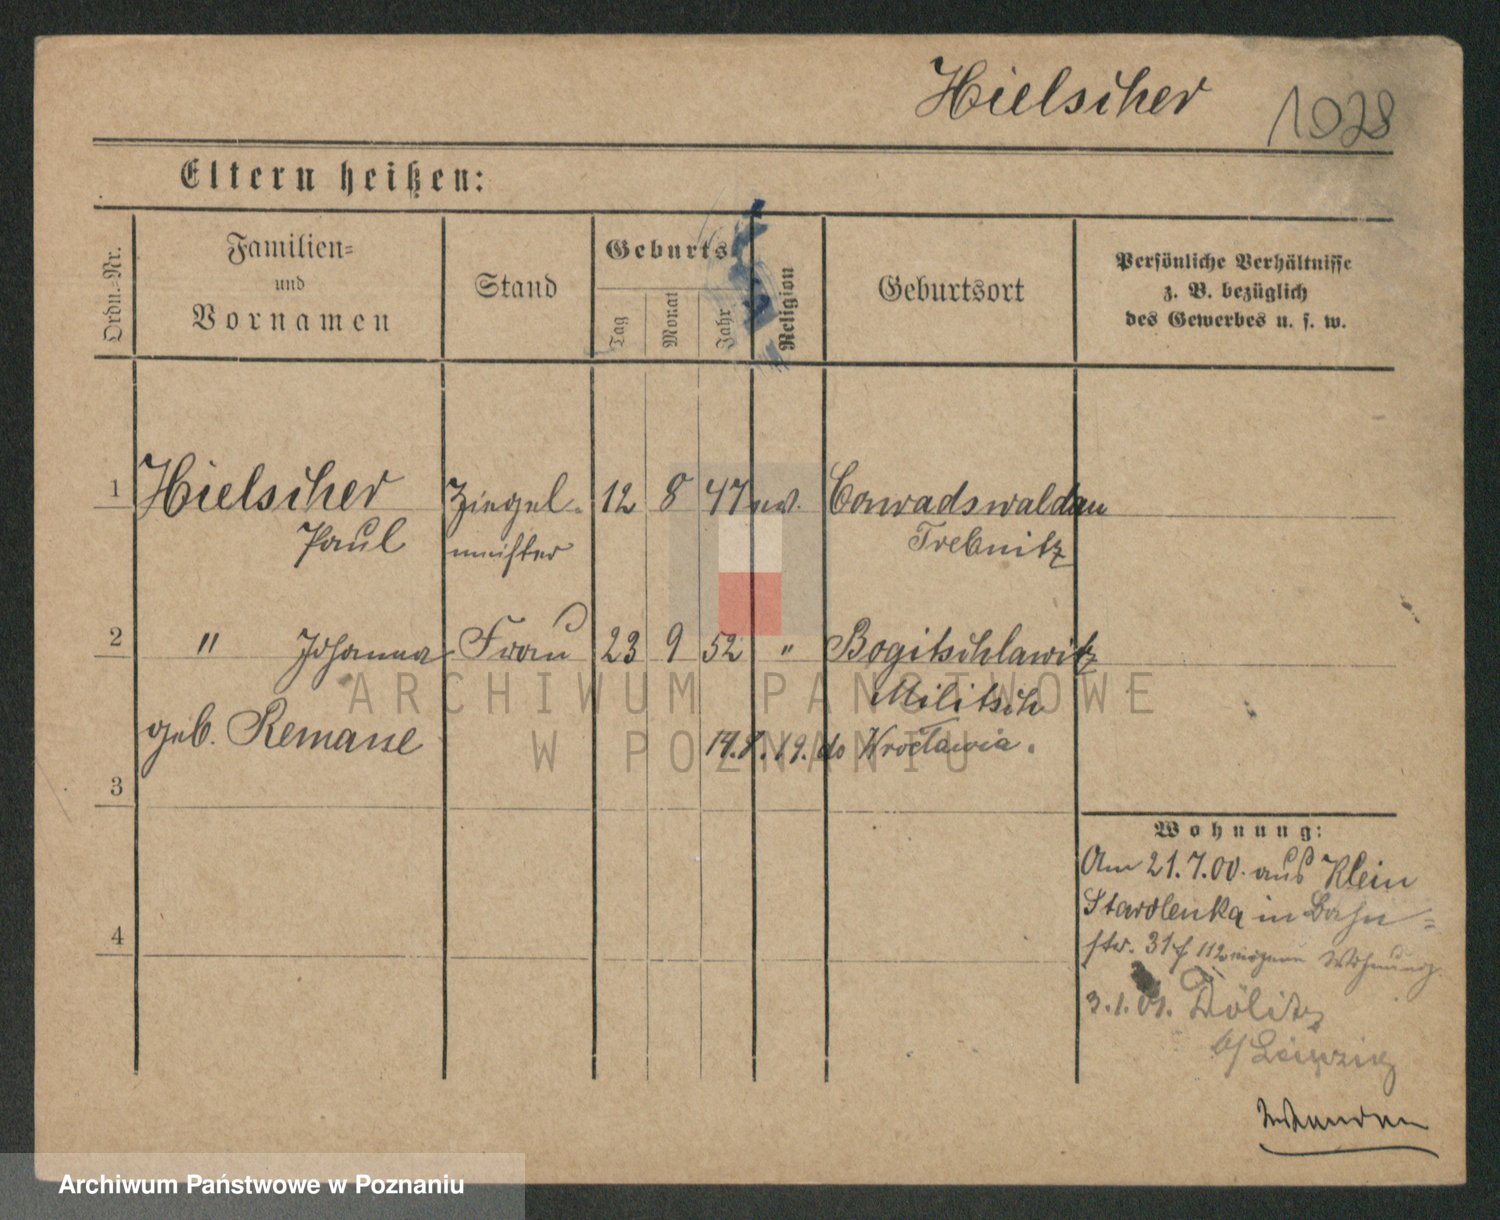 Hielscher 1028
Eltern heißen:
Ordn.-Nr.
Familien-
und
Vornamen
Stand
Geburts-
Tag
Monat
Jahr
Religion
Geburtsort
Persönliche Verhältnisse
z. B. bezüglich
des Gewerbes u. s. w.
1 Hielscher Ziegel- 12 8 47 ev. Conradswaldau
Paul meister Trebnitz
2 " Johanna Frau 23 9 52 " Bogitschlawitz
Militsch
geb. Remane
14.8.19. do Wrocławia.
3
4
Wohnung:
Am 21.7.00. aus Klein
Starolenka in Bahn-
str. 31 f 112 Wohnung.
3.1.01. Dölitz
b/ Leipzig
ARCHIWUM PAŃSTWOWE
W POZNANIU
Archiwum Państwowe w Poznaniu